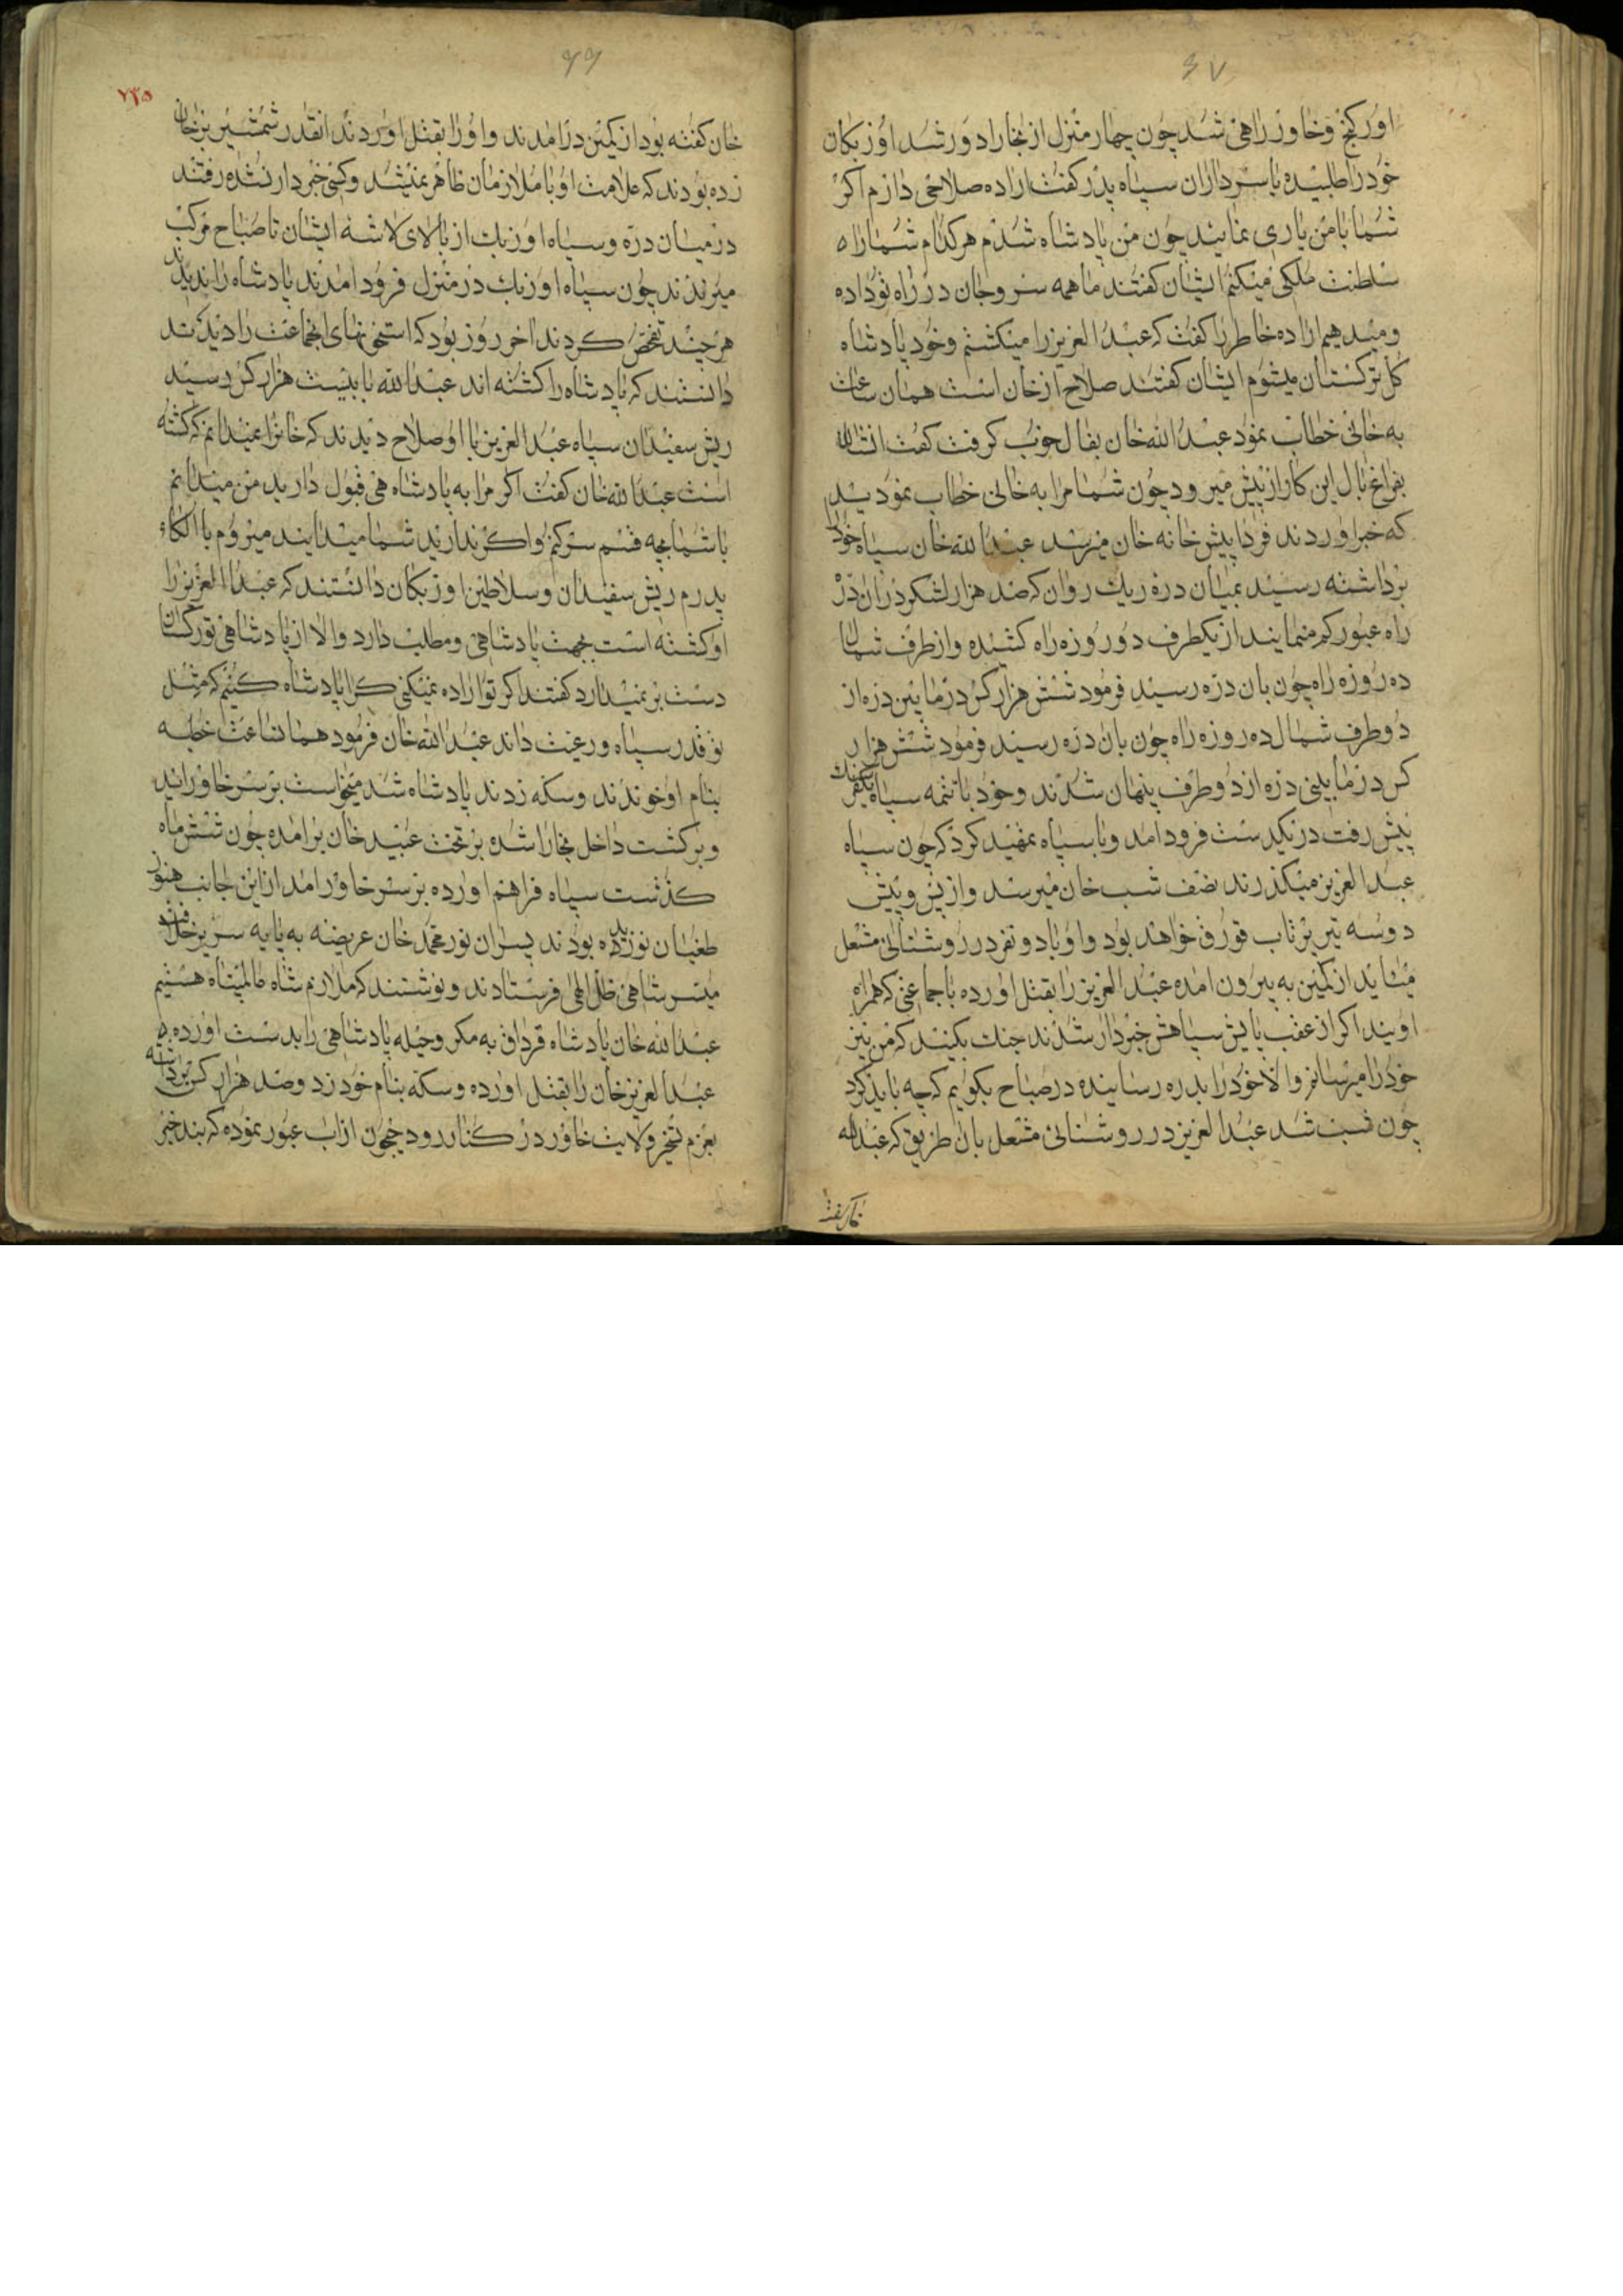 ۶۷
اورکنج و خاور راهی شد چون چهار منزل از بخارا دور شد اوزبکان
خود را طلبیده با سرداران سپاه پدر گفت اراده صلاحی دارم اگر
شما با من یاری نمایید چون من پادشاه شدم هر کدام شما را ه
سلطنت ملکی میکنم ایشان گفتند ما همه سر و جان در راه تو داده
و میدهیم اراده خاطر را گفت که عبدالعزیز را میکشیم و خود پادشاه
کل ترکستان میشوم ایشان گفتند صلاح از خان است همان ساعت
به خانی خطاب نمود عبدالله خان بفال خوب گرفت گفت انشالله
بفراغ بال این کار از پیش میرود چون شما مرا به خانی خطاب نمودید
که خبر اوردند فردا پیش خانه خان میرسد عبدالله خان سپاه خود
برداشته رسید بمیان دره ریک روان که صد هزار لشکر در ان در
راه عبور کم مینمایند از یکطرف دو روزه راه کشیده و از طرف شمال
ده روزه راه چون بان دره رسید فرمود شش هزار کس در مابین دره از
دو طرف شمال ده روزه راه چون بان دره رسید فرمود شش هزار
کس در مابینی دره از دو طرف پنهان شدند و خود با تتمه سپاه یکفرسنک
پیش رفت در یکدست فرود امد و با سپاه تمهید کرد که چون سپاه
عبدالعزیز میگذرند نصف شب خان میرسد و از پس و پیش
دو سه تیر پرتاب قوروق خواهد بود و او با دو نفر در روشنائی مشعل
میاید از کمین به بیرون امده عبدالعزیز را بقتل اورده با جماعتی که همراه
اویند اگر از عقب پایش سپاهش خبردار شدند جنک بکنید که من نیز
خود را میرسانم والا خود را بدره رسانیده در صباح بگویم که چه باید کرد
چون شب شد عبدالعزیز در روشنائی مشعل بان طریق که عبدالله
خان گفته
۶۶
۲۳۵
خان گفته بود از کمین درامدند و او را بقتل اوردند انقدر شمشیر بر خان
زده بودند که علامت او با ملازمان ظاهر نمیشد و کسی خبردار نشده رفتند
در میان دره و سپاه اوزبک از بالای لاشه ایشان تا صباح مرکب
میراندند چون سپاه اوزبک در منزل فرود امدند پادشاه را ندیدند
هر چند تفحص کردند اخر روز بود که استخوانهای انجماعت را دیدند
دانستند که پادشاه را کشته اند عبدالله با بیست هزار کس رسید
ریش سفیدان سپاه عبدالعزیز با او صلاح دیدند که خانرا نمیدانم که کشته
است عبدالله خان گفت اگر مرا به پادشاهی قبول دارید من میدانم
با شما بچه قسم سر کنم و اگر ندارید شما میدانید میروم با الکاء
پدرم ریش سفیدان و سلاطین اوزبکان دانستند که عبدالعزیز را
او کشته است بجهت پادشاهی و مطلب دارد والا از پادشاهی تورکستان
دست بر نمیدارد گفتند اگر تو اراده نمیکنی کرا پادشاه کنیم که مثل
تو قدر سپاه و رعیت داند عبدالله خان فرمود همانساعت خطبه
بنام او خوندند و سکه زدند پادشاه شد میخواست بر سر خاور اید
و برگشت داخل بخارا شده بر تخت عبید خان برامده چون شش ماه
گذشت سپاه فراهم اورده بر سر خاور امد از این جانب هنوز
طغیان نورزیده بودند پسران نورمحمد خان عریضه به پایه سریر خلافت
میسر شاهی ظل الهی فرستادند و نوشتند که ملازم شاه عالمپناه هستیم
عبدالله خان پادشاه قرداق به مکر و حیله پادشاهی را بدست اورده
عبدالعزیز خان را بقتل اورده و سکه بنام خود زد و صد هزار کس برداشته
بعزم تسخیر ولایت خاور در کنار رود جیحون از اب عبور نموده که بند خبر